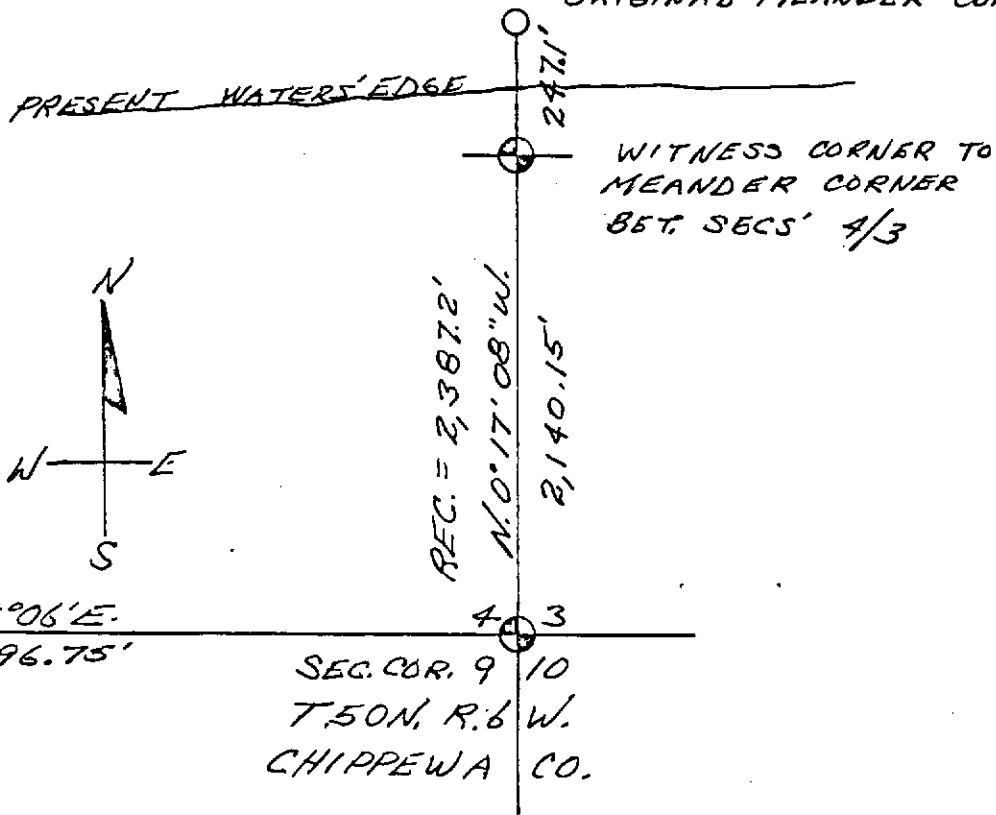 ORIGINAL MEANDER
247.1'
PRESENT WATERS' EDGE
WITNESS CORNER TO
MEANDER CORNER
BET. SECS' 4/3
N
W E
S
REC. = 2,387.2'
N. 0° 17' 08" W.
2,140.15'
°06' E.
96.75'
4 3
SEC. COR. 9 10
T.50N. R.6 W.
CHIPPEWA CO.